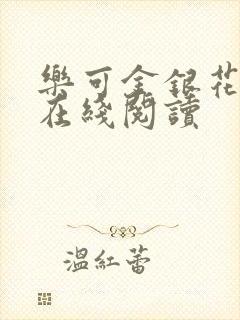 樂可金銀花
在綫閱讀
溫紅蕾